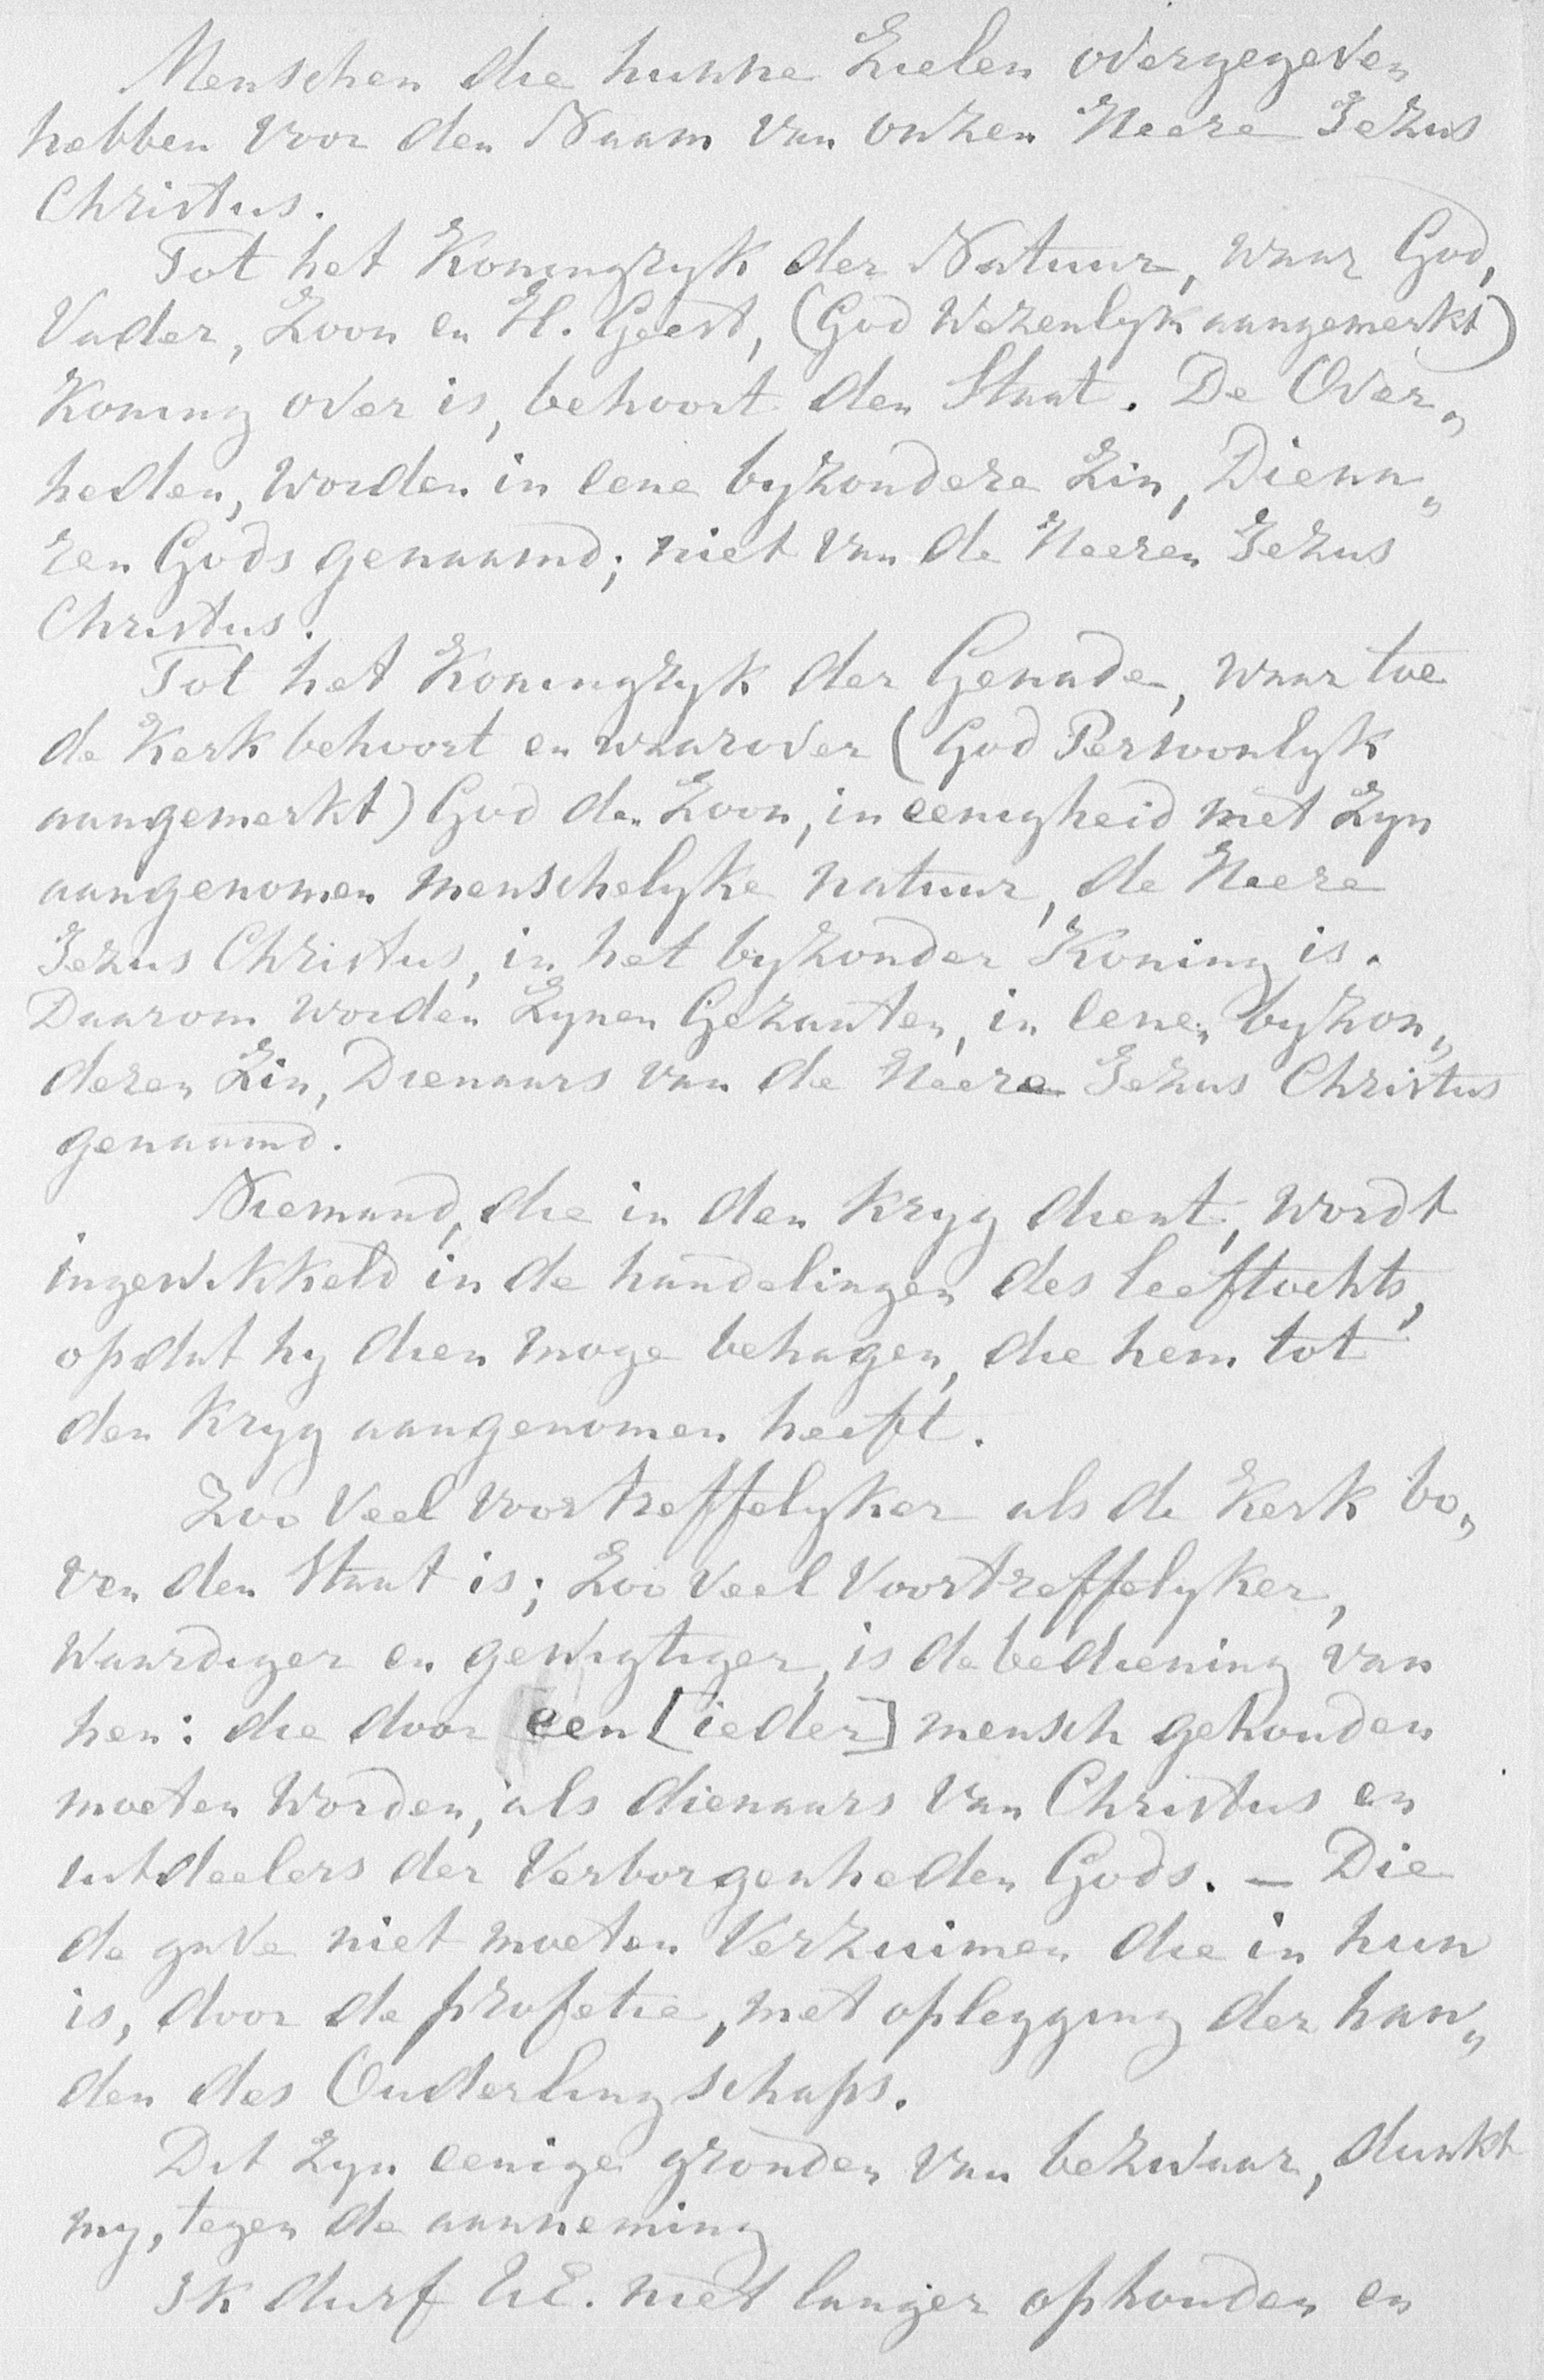 Menschen die hunne Zielen overgegeven
hebben voor den Naam van onzen Heere Jezus
Christus.
Tot het Koningryk der Natuur, waar God,
Vader, Zoon en H. Geest, (God Wezenlyk aangemerkt)
Koning over is, behoort den Staat. De Over„
heden, worden in eene byzondere Zin, Diena„
ren Gods genaamd; niet van de Heeren Jezus
Christus.
Tot het Koningryk der Genade, waar toe
de Kerk behoort en waarover (God Persoonlyk
aangemerkt) God den Zoon, in eenigheid met Zyn
aangenomen menschelyke natuur, de Heere
Jezus Christus, in het byzonder Koning is.
Daarom worden Zynen Gezanten, in eenen byzon„
deren Zin, Dienaars van de Heere Jezus Christus
genaamd.
Niemand, die in den kryg dient, wordt
ingewikkeld in de handelingen des leeftochts,
opdat hy dien moge behagen, die hem tot
den kryg aangenomen heeft.
Zoo veel voortreffelyker als de Kerk bo„
ven den Staat is; Zoo veel voortreffelyker,
waardiger en gewigtiger, is de bediening van
hen: die door een [ieder] mensch gehouden
moeten worden, als dienaars van Christus en
uitdeelers der Verborgenheden Gods. — Die
de gave niet moeten verzuimen die in hun
is, door de profetie, met oplegging der han„
den des Ouderlingschaps.
Dit Zyn eenige gronden van bezwaar, dunkt
my, tegen de aanneming
Ik durf UE. niet langer ophouden en